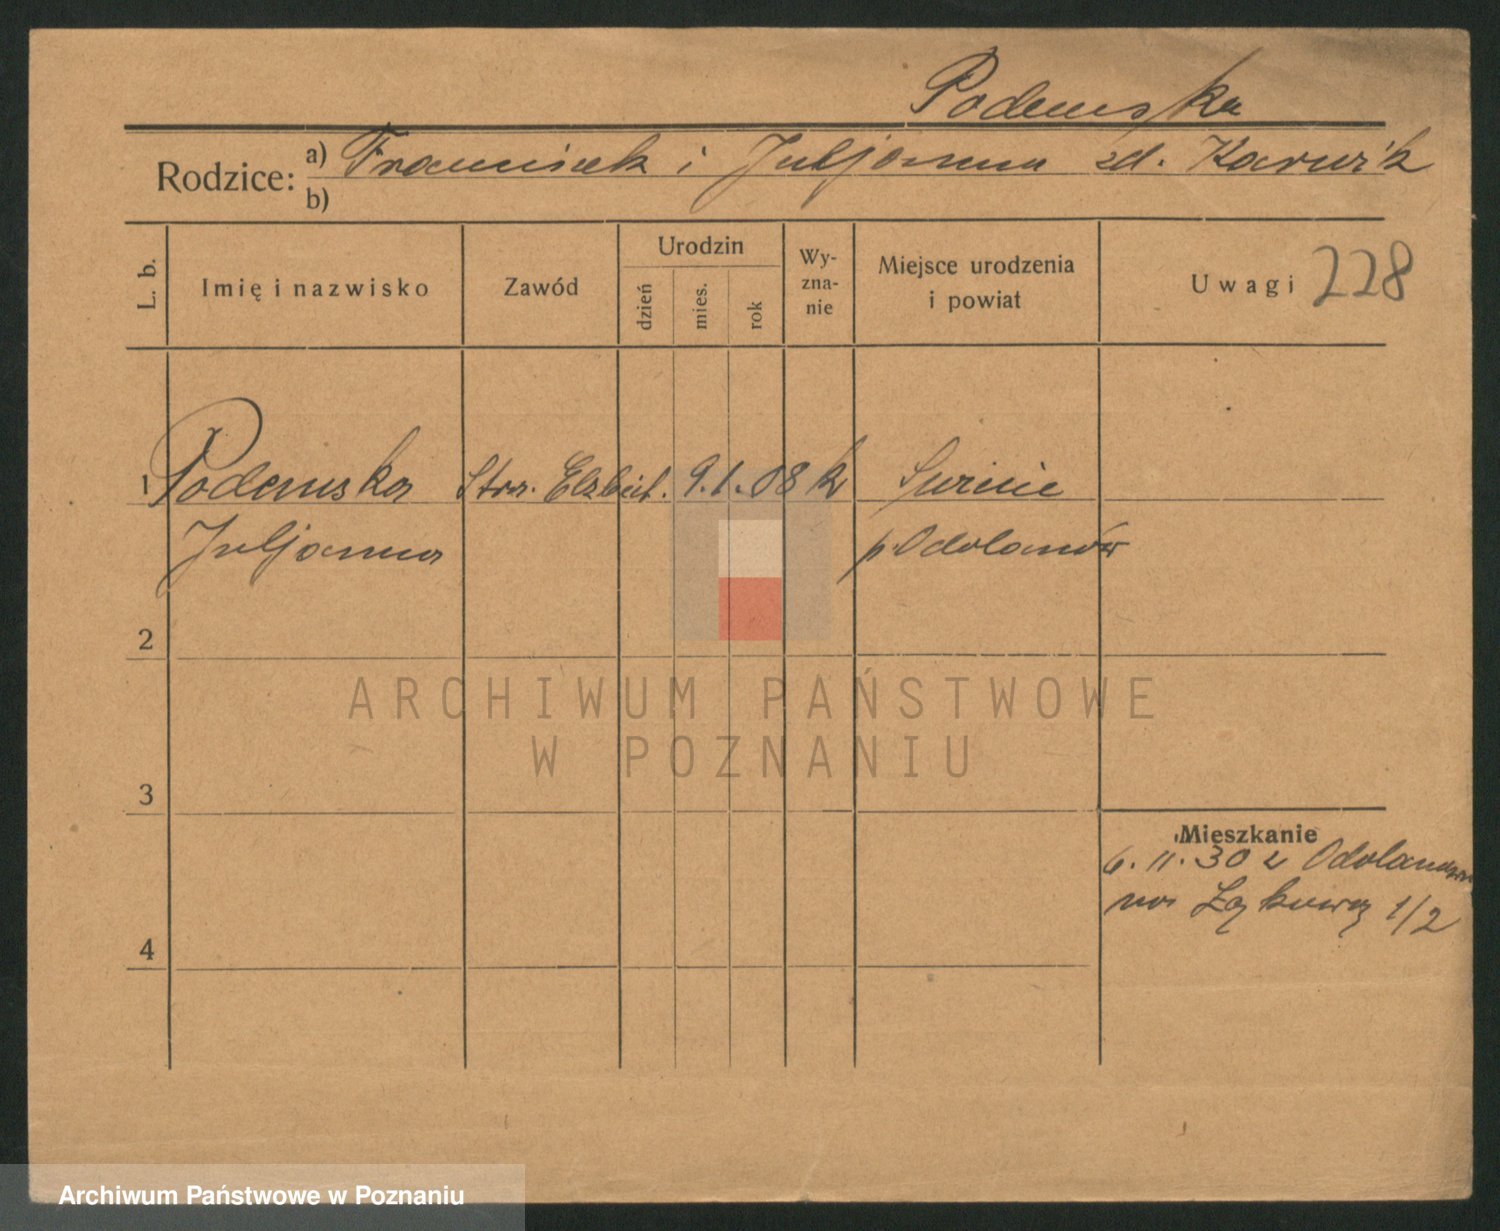 Podemska
Rodzice: a) Franciszek i Juljanna zd. Karwik
b)
L. b.
Imię i nazwisko
Zawód
Urodzin
dzień
mies.
rok
Wy-
zna-
nie
Miejsce urodzenia
i powiat
Uwagi 228
1 Podemska Str. Elżbiet. 9.1.08 k
Juljanna p. Odolanów
2
3
4
Mieszkanie
6.11.30 z Odolanowa
na Łąkową 1/2
ARCHIWUM PAŃSTWOWE
W POZNANIU
Archiwum Państwowe w Poznaniu